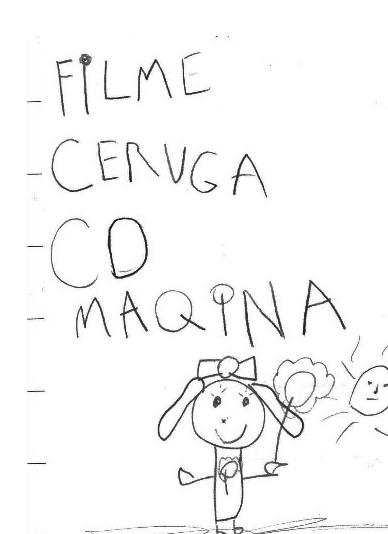 FiLME
CERUGA
CD
MAQiNA